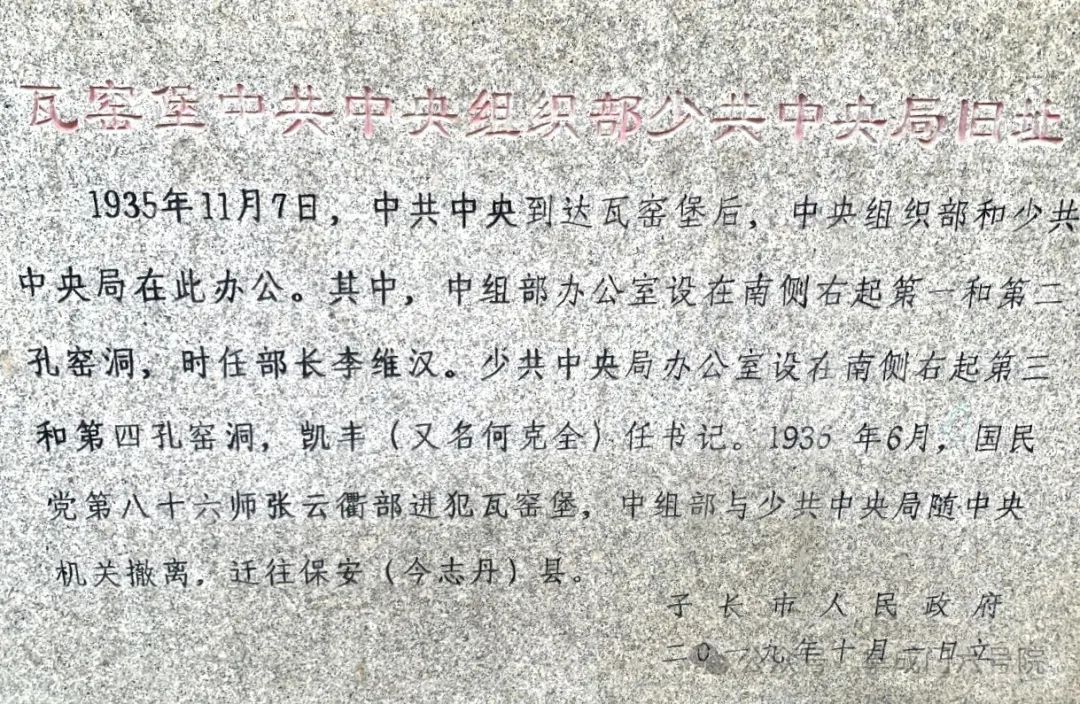 瓦窑堡中共中央组织部少共中央局旧址
1935年11月7日，中共中央到达瓦窑堡后，中央组织部和少共
中央局在此办公。其中，中组部办公室设在南侧右起第一和第二
孔窑洞，时任部长李维汉。少共中央局办公室设在南侧右起第三
和第四孔窑洞，凯丰（又名何克全）任书记。1936 年6月，国民
党第八十六师张云衢部进犯瓦窑堡，中组部与少共中央局随中央
机关撤离，迁往保安（今志丹）县。
子长市人民政府
二〇一九年十月一日立